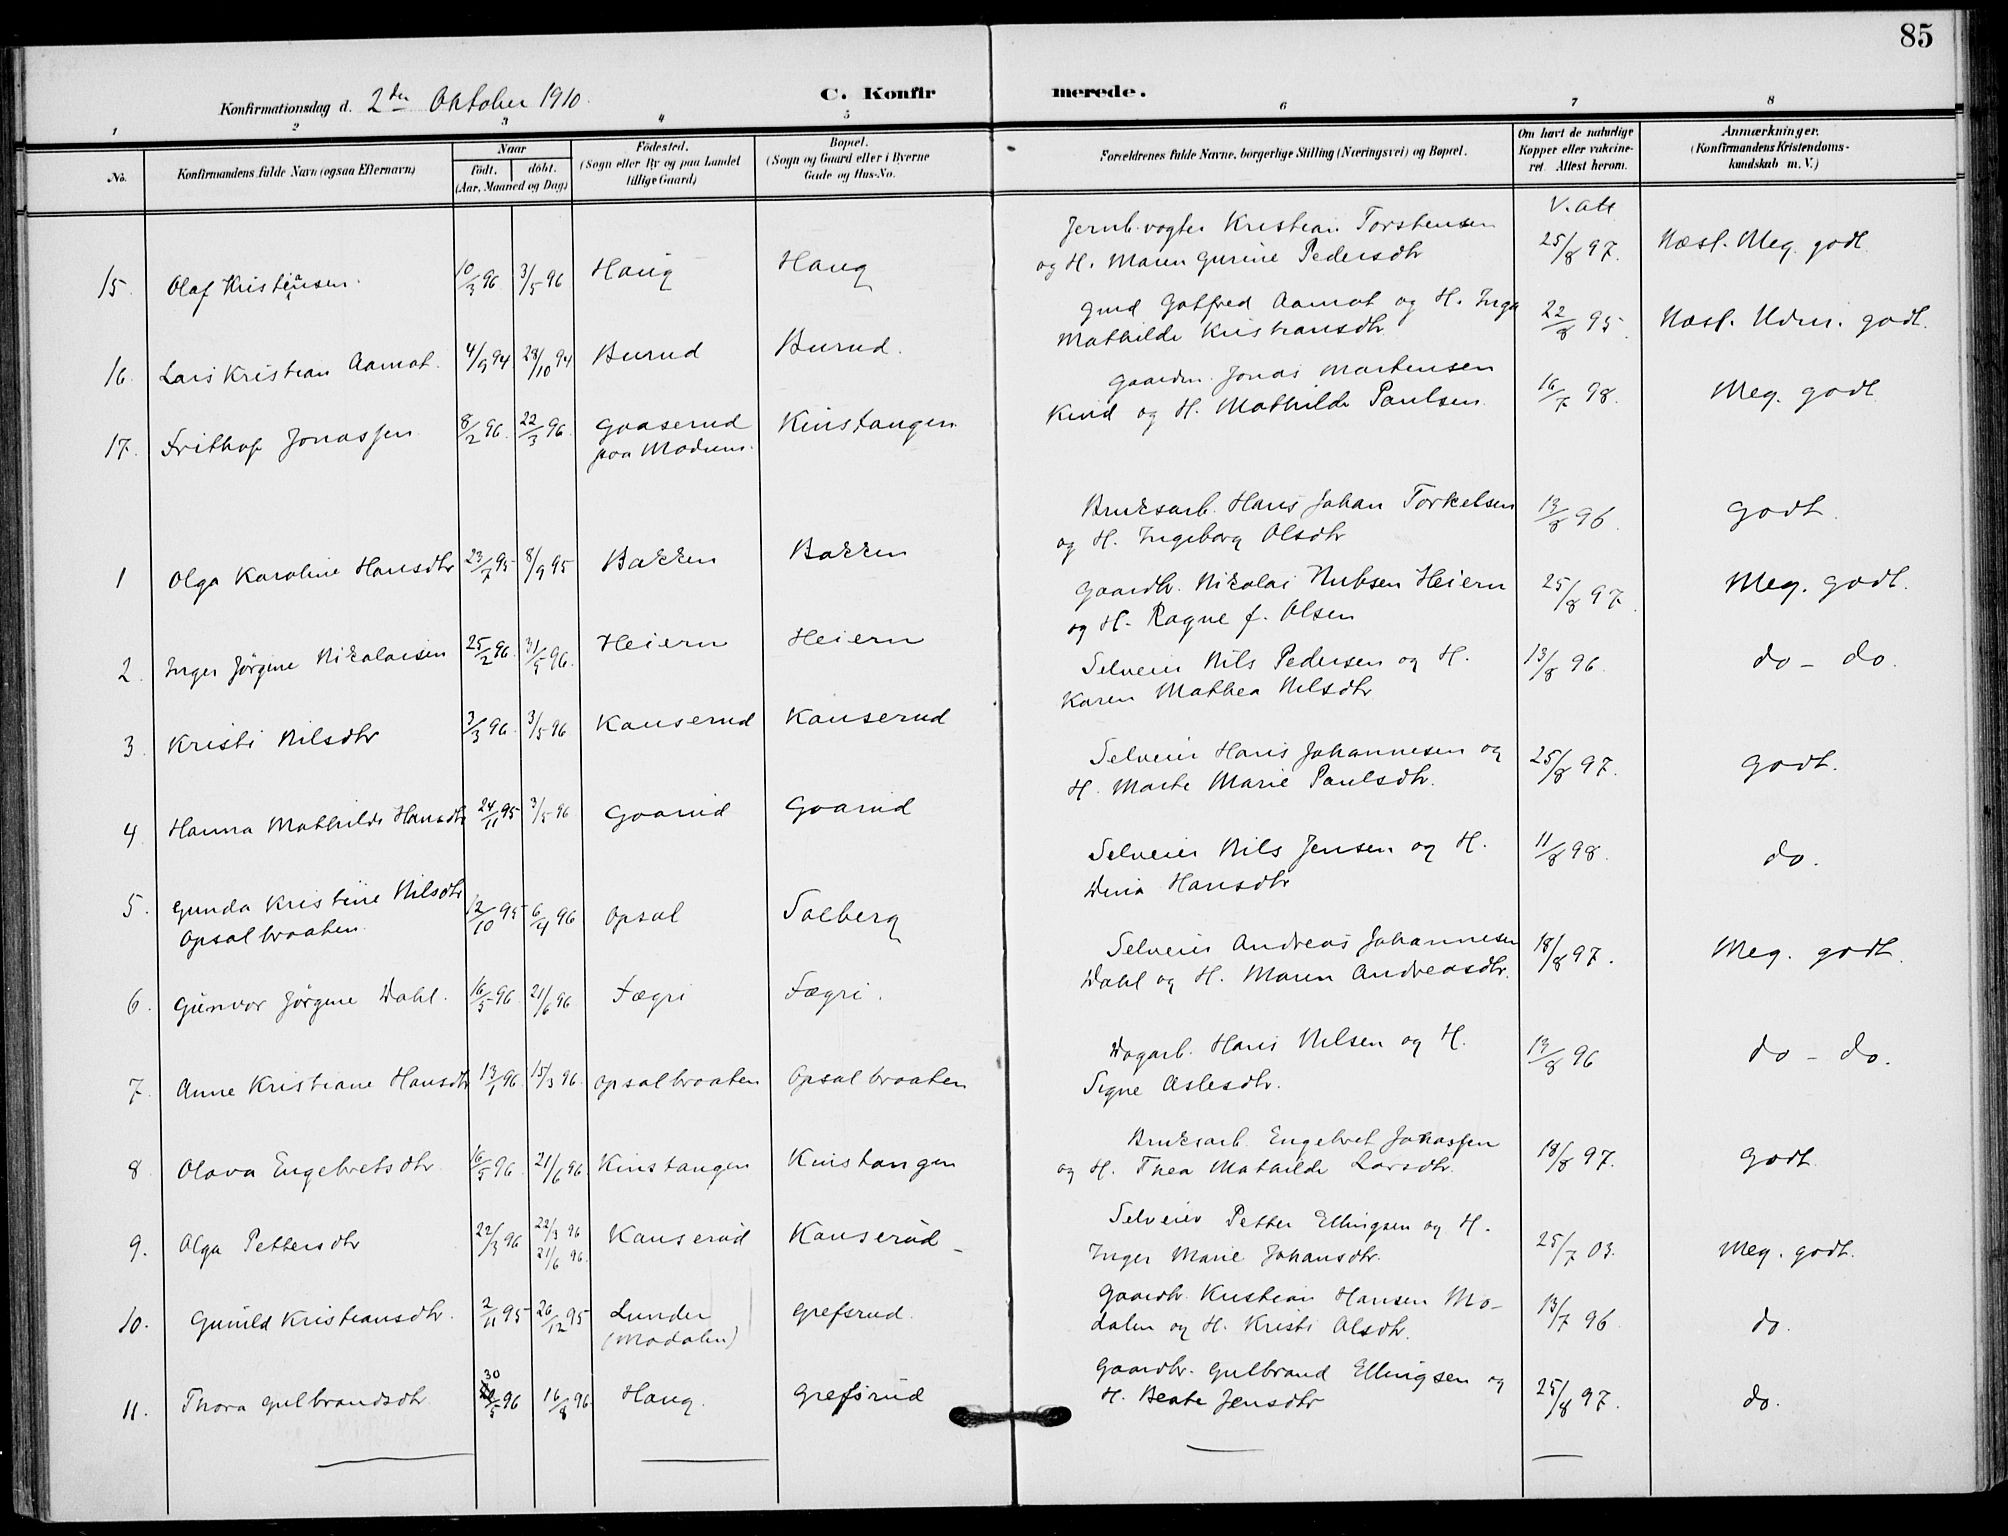 85
Konfirmationsdag d. 2den Oktober 1910.
C. Konfirmerede.
1 2 3 4 5 6 7 8
No.
Konfirmandens fulde Navn (ogsaa Efternavn)
Naar
født. døbt.
(Aar, Maaned og Dag)
Fødested.
(Sogn eller By og paa Landet
tillige Gaard)
Bopæl.
(Sogn og Gaard eller i Byerne
Gade og Hus-No.
Forældrenes fulde Navne, borgerlige Stilling (Næringsvei) og Bopæl.
Om havt de naturlige
Kopper eller vakcine-
ret. Attest herom.
Anmærkninger.
(Konfirmandens Kristendoms-
kundskab m. V.)
V. att.
Jernb.vogter Kristian Torstensen
15. Olaf Kristiansen. 10/3 96 3/5 96 Haug Haug og H. Maren Gurine Pedersdtr 25/8 97. Næst. Meg. godt.
Gmd Gotfred Aamot og H. Inga
16. Lars Kristian Aamot. 4/9 94 28/10 94 Burud Burud. Mathilde Kristiansdtr 22/8 95. Næst. Udm. godt.
Gaardm. Jonas Martensen
17. Frithof Jonassen 8/2 96. 22/3 96. Gaaserud Kinstangen Kind og H. Mathilde Paulsen. 16/7 98. Meg. godt
paa Modum.
Bruksarb. Hans Johan Torkelsen
1 Olga Karoline Hansdtr 23/7 95 8/9 95 Bakken Bakken og H. Ingeborg Olsdtr 13/8 96. Godt.
Gaardbr. Nikolai Nubsen Heiern
2. Inger Jørgine Nikolaisen 25/2 96. 31/5 96. Heiern Heiern og H. Ragne f. Olsen 25/8 97. Meg. godt.
Selveier Nils Pedersen og H.
3. Kristi Nilsdtr 3/3 96. 3/5 96 Kanserud Kanserud Karen Mathea Nilsdtr 13/8 96. do - do.
Selveier Hans Johannesen og
4. Hanna Mathilde Hansdtr 24/11 95 3/5 96 Goarud Goarud H. Marte Marie Paulsdtr. 25/8 97. Godt.
Selveier Nils Jensen og H.
5. Gunda Kristine Nilsdtr 12/10 95 6/4 96 Opsal Solberg Dina Hansdtr 11/8 98. do.
Opsalbraaten
Selveier Andreas Johannesen
6. Gunvor Jørgine Dahl. 16/5 96 21/6 96 Fægri Fægri. Dahl og H. Maren Andreasdtr. 18/8 97. Meg. godt.
Dagarb. Hans Nilsen og H.
7. Anne Kristiane Hansdtr 13/1 96. 15/3 96. Opsalbraaten Opsalbraaten Signe Aslesdtr. 13/8 96 do - do.
Bruksarb. Engebret Johassen
8. Olava Engebretsdtr. 16/5 96. 21/6 96 Kinstangen Kinstangen og H. Thea Mathilde Larsdtr. 18/8 97. Godt.
Selveier Petter Ellingsen og H.
9. Olga Pettersdtr 22/3 96 22/3 96 21/6 96. Kanserud Kanserud Inger Marie Johansdtr. 25/7 03. Meg. godt.
Gaardbr. Kristian Hansen Mo-
10. Gunild Kristiansdtr. 2/11 95 26/12 95 Lunder Grefsrud. dalen og H. Kristi Olsdtr. 13/7 96. do.
(Modalen)
Gaardbr. Gulbrand Ellingsen og
11. Thora Gulbrandsdtr 30/5 96 16/8 96. Haug. Grefsrud H. Beate Jensdtr 25/8 97. do.